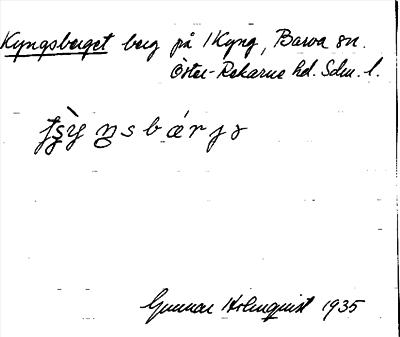 Kyngsberget berg på 1 Kyng, Barva sn.
Öster-Rekarne hd. Sdm. l.
Gunnar Holmquist 1935